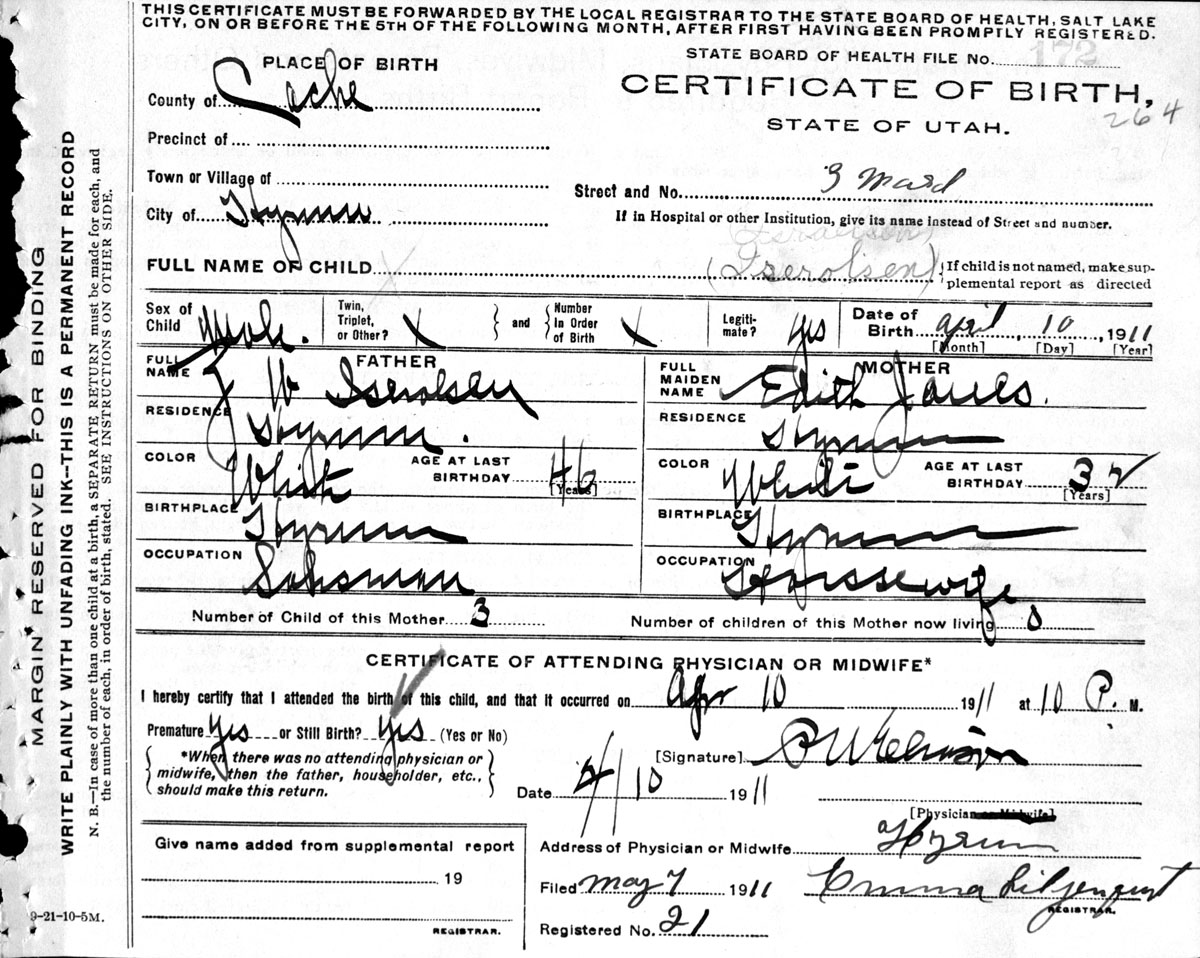 THIS CERTIFICATE MUST BE FORWARDED BY THE LOCAL REGISTRAR TO THE STATE BOARD OF HEALTH, SALT LAKE
CITY, ON OR BEFORE THE 5TH OF THE FOLLOWING MONTH, AFTER FIRST HAVING BEEN PROMPTLY REGISTERED.
STATE BOARD OF HEALTH FILE No. 172
PLACE OF BIRTH
CERTIFICATE OF BIRTH,
264
STATE OF UTAH.
County of Cache
Precinct of
Town or Village of
Street and No. 3 Ward
City of Hyrum
If in Hospital or other Institution, give its name instead of Street and number.
(Israelson)
FULL NAME OF CHILD (Iserolsen) If child is not named, make sup-
plemental report as directed
Sex of Child Male. Twin, Triplet, or Other? X and Number In Order of Birth X Legiti-mate? yes Date of Birth April 10, 1911
[Month] [Day] [Year]
FATHER
FULL NAME J W Iserolsen
MOTHER
FULL MAIDEN NAME Edith
RESIDENCE Hyrum.
RESIDENCE Hyrum
COLOR White AGE AT LAST BIRTHDAY 46 [Years]
COLOR White AGE AT LAST BIRTHDAY 32 [Years]
BIRTHPLACE Hyrum
BIRTHPLACE Hyrum
OCCUPATION Salesman
OCCUPATION Housewife
Number of Child of this Mother 3
Number of children of this Mother now living 0
CERTIFICATE OF ATTENDING PHYSICIAN OR MIDWIFE*
I hereby certify that I attended the birth of this child, and that it occurred on Apr 10 1911 at 10 P. M.
Premature yes or Still Birth? yes (Yes or No)
*When there was no attending physician or
midwife, then the father, householder, etc.,
should make this return.
[Signature]
Date 4/10 1911
[Physician or Midwife]
Address of Physician or Midwife Hyrum
Filed May 7 1911 Emma Liljenquist
REGISTRAR.
Registered No. 21
Give name added from supplemental report
19
REGISTRAR.
9-21-10-5M.
MARGIN RESERVED FOR BINDING
WRITE PLAINLY WITH UNFADING INK--THIS IS A PERMANENT RECORD
N. B.—In case of more than one child at a birth, a SEPARATE RETURN must be made for each, and
the number of each, in order of birth, stated. SEE INSTRUCTIONS ON OTHER SIDE.